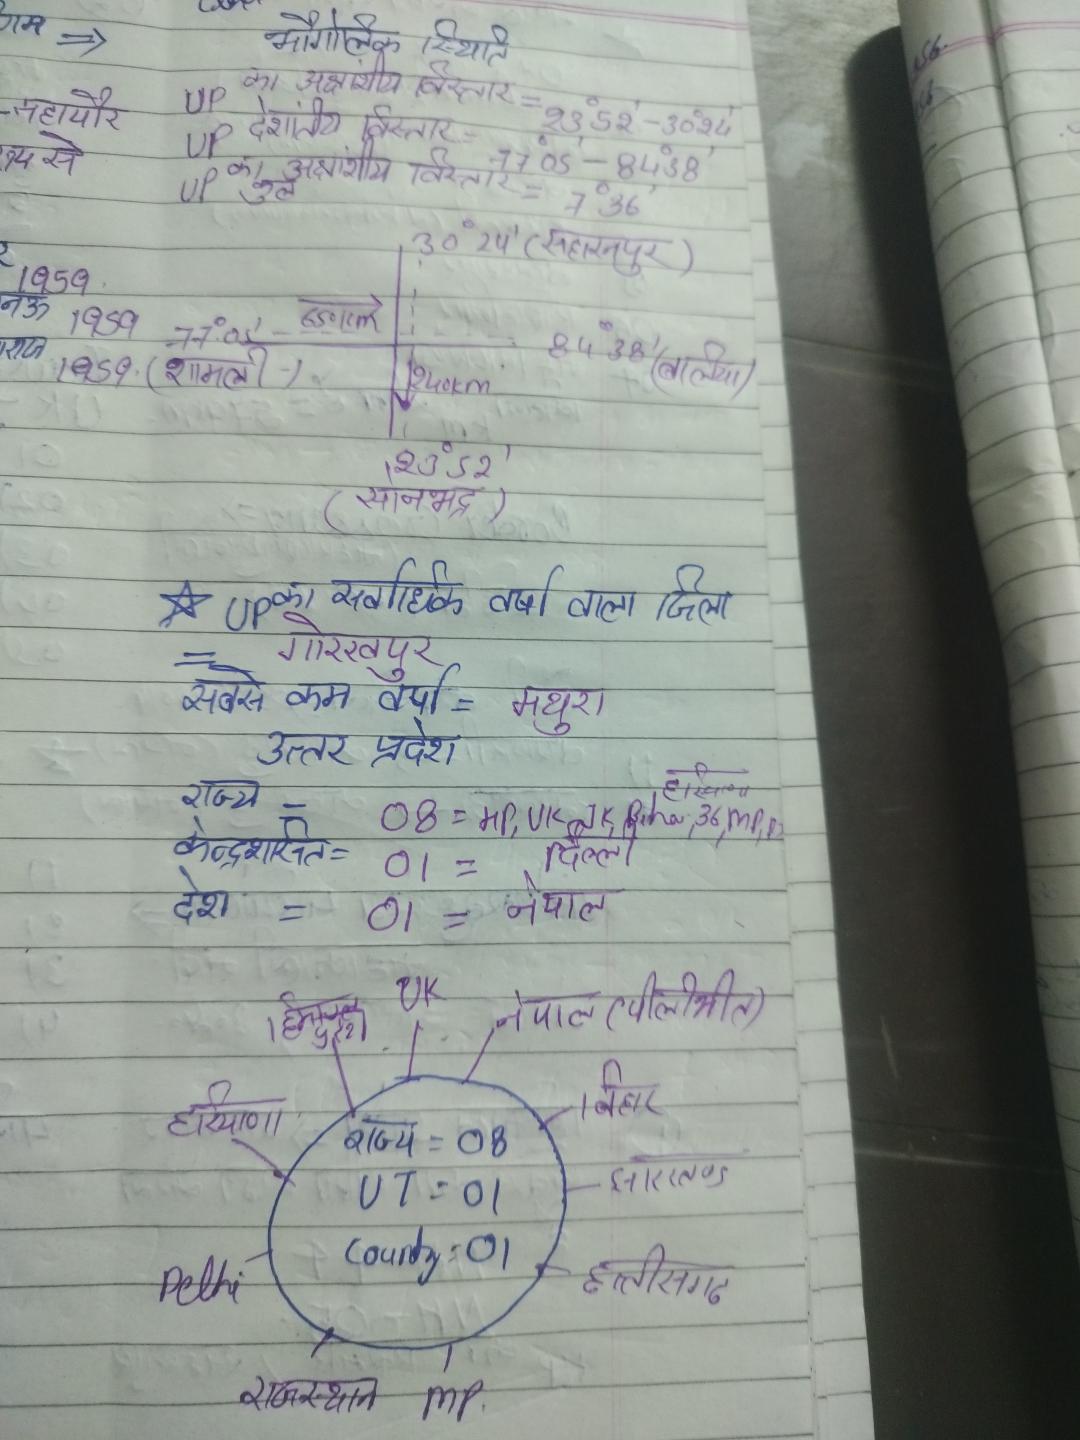 ⇒ भौगोलिक स्थिति
UP का अक्षांशीय विस्तार = 23°52' - 30°24'
UP देशांतीय विस्तार = 77°05' - 84°38'
UP का कुल अक्षांशीय विस्तार = 7°36'
महापौर
से
30°24' (सहारनपुर)
1959.
1959
1959.
77°05'
(शामली)
650km
84°38' (बालिया)
240km
23°52'
(सोनभद्र)
☆ UP का सर्वाधिक वर्षा वाला जिला
= गोरखपुर
सबसे कम वर्षा = मथुरा
उत्तर प्रदेश
हरियाणा
राज्य = 08 = MP, UK, JK, Bihar, 36, MP,
केन्द्रशासित = 01 = दिल्ली
देश = 01 = नेपाल
हिमाचल प्रदेश
UK
नेपाल (पीलीभीत)
हरियाणा
बिहार
राज्य = 08
UT = 01
झारखण्ड
County = 01
Delhi
छत्तीसगढ
राजस्थान
MP.